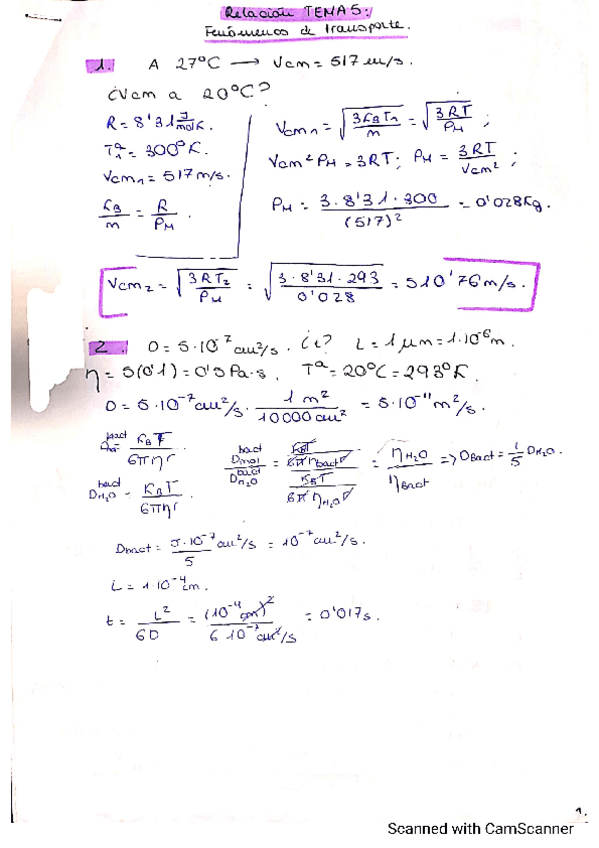 Relación TEMA 5:
Fenómenos de transporte.
1. A 27°C → Vcm = 517 m/s.
¿Vcm a 20°C?
R = 8'31 J/mol K.
T₁ᵃ = 300°K.
Vcm₁ = 517 m/s.
K_B/m = R/P_M.
Vcm₁ = √(3K_BT₁/m) = √(3RT/P_M) ;
Vcm² P_M = 3RT; P_M = 3RT/Vcm² ;
P_M = 3·8'31·300/(517)² = 0'028Kg.
Vcm₂ = √(3RT₂/P_M) = √(3·8'31·293/0'028) = 510'76 m/s.
2. D = 5·10⁻⁷ cm²/s. ¿t? L = 1 μm = 1·10⁻⁶ m.
η = 5(0'1) = 0'5 Pa·s. Tᵃ = 20°C = 293°K.
D = 5·10⁻⁷ cm²/s · 1 m²/10000 cm² = 5·10⁻¹¹ m²/s.
bact K_BT/6πηr
bact D_H₂O = K_BT/6πηr
= η H₂O/η Bact => D Bact = 1/5 D H₂O.
D bact = 5·10⁻⁷ cm²/s / 5 = 10⁻⁷ cm²/s.
L = 1·10⁻⁴ cm.
t = L²/6D = (10⁻⁴ cm)²/6·10⁻⁷ cm²/s = 0'017s.
1.
Scanned with CamScanner